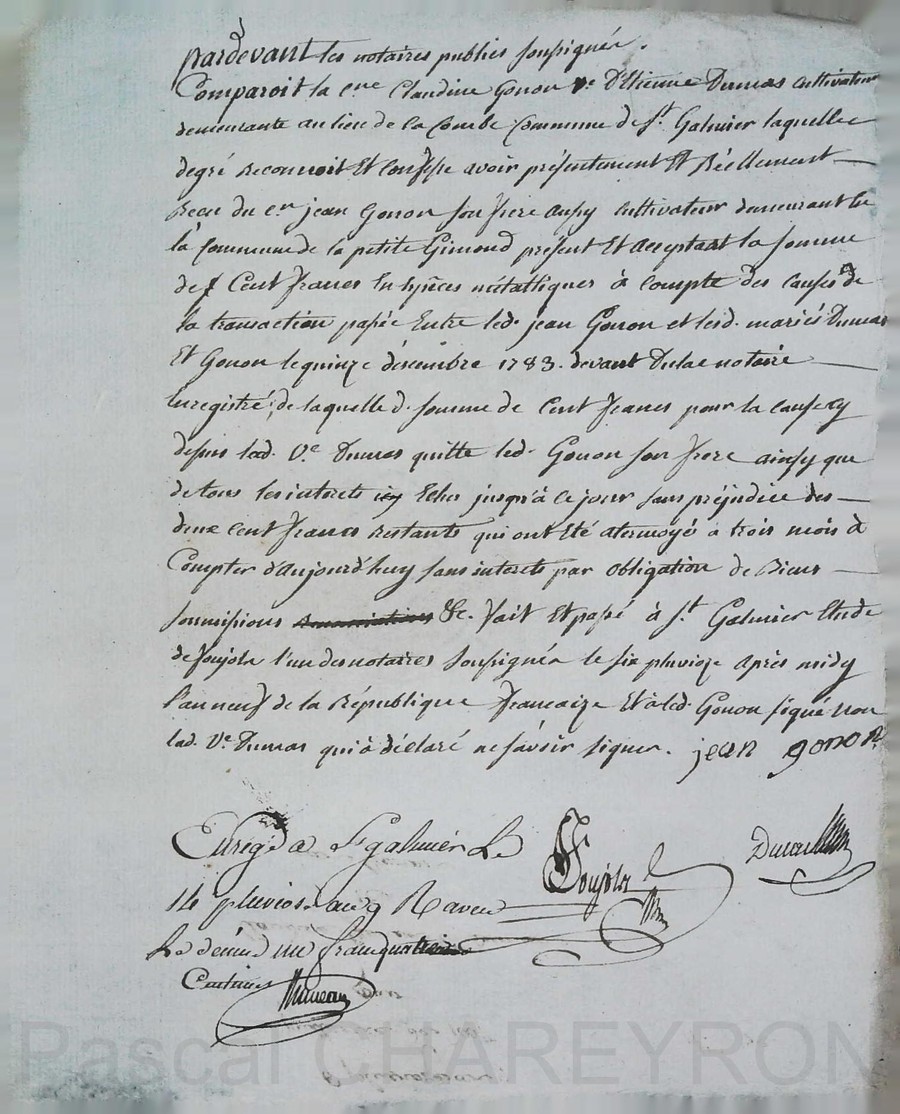 pardevant les notaires publics soussignés.
Comparoit la cne Claudine Gonon ve D'Etienne Dumas cultivateur
demeurante au lieu de la Combe Commune de St. Galmier laquelle
degré reconnoit Et confesse avoir présentement Et Réellement
Recu du cn jean Gonon son frere aussy cultivateur demeurant en
la Commune de la petite Gimond présent Et acceptant la somme
de Cent francs En Espèces métalliques à compte des causes de
la transaction passée Entre led. jean Gonon et lesd. mariés Dumas
Et Gonon le quinze décembre 1783. devant Dulac notaire
Enregistré, de laquelle d. somme de Cent francs pour la cause cy
dessus lad. Ve Dumas quitte led. Gonon son frere ainsy que
de tous les interets Echus jusqu'à ce jour sans préjudice des
deux cent francs restants qui ont Eté atermoyés à trois mois à
Compter d'aujourd'huy sans interets par obligation de Biens
soumissions &c. fait Et passé à St. Galmier Etude
de soujols l'un des notaires soussignés le six pluvioze après midy
l'an neuf de la République francaize Et à led. Gonon signé non
lad. Ve Dumas qui à déclaré ne savoir signer. jean gonon
Enregé a St galmier Le
Soujols
Dulac
14 pluviose an 9 Recu
Le décime un franc
Centimes
Pascal CHAREYRON